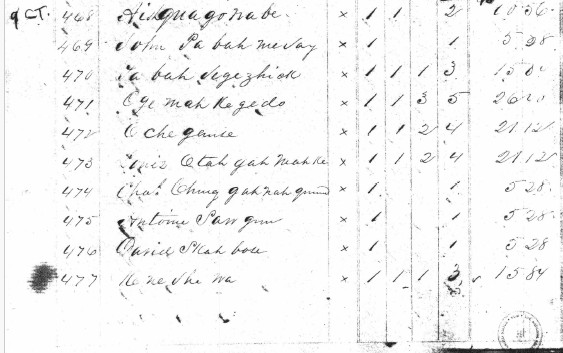 & CT. 468 Aishquagonabe × 1 1 2 10 56
469 John Pa bah me Say × 1 1 5.28
470 Pa bah segezhick × 1 1 1 3 15 84
471 O ge mah ke ge do × 1 1 3 5 26
472 O che × 1 1 2 4 21 12
473 Otah gah mah ke × 1 1 2 4 21 12
474 Chas Ching gah nah × 1 1 5 28
475 Antoine Saw gun × 1 1 5 28
476 David Skah bose × 1 1 5 28
477 Ke ne she wa × 1 1 1 3 15 84